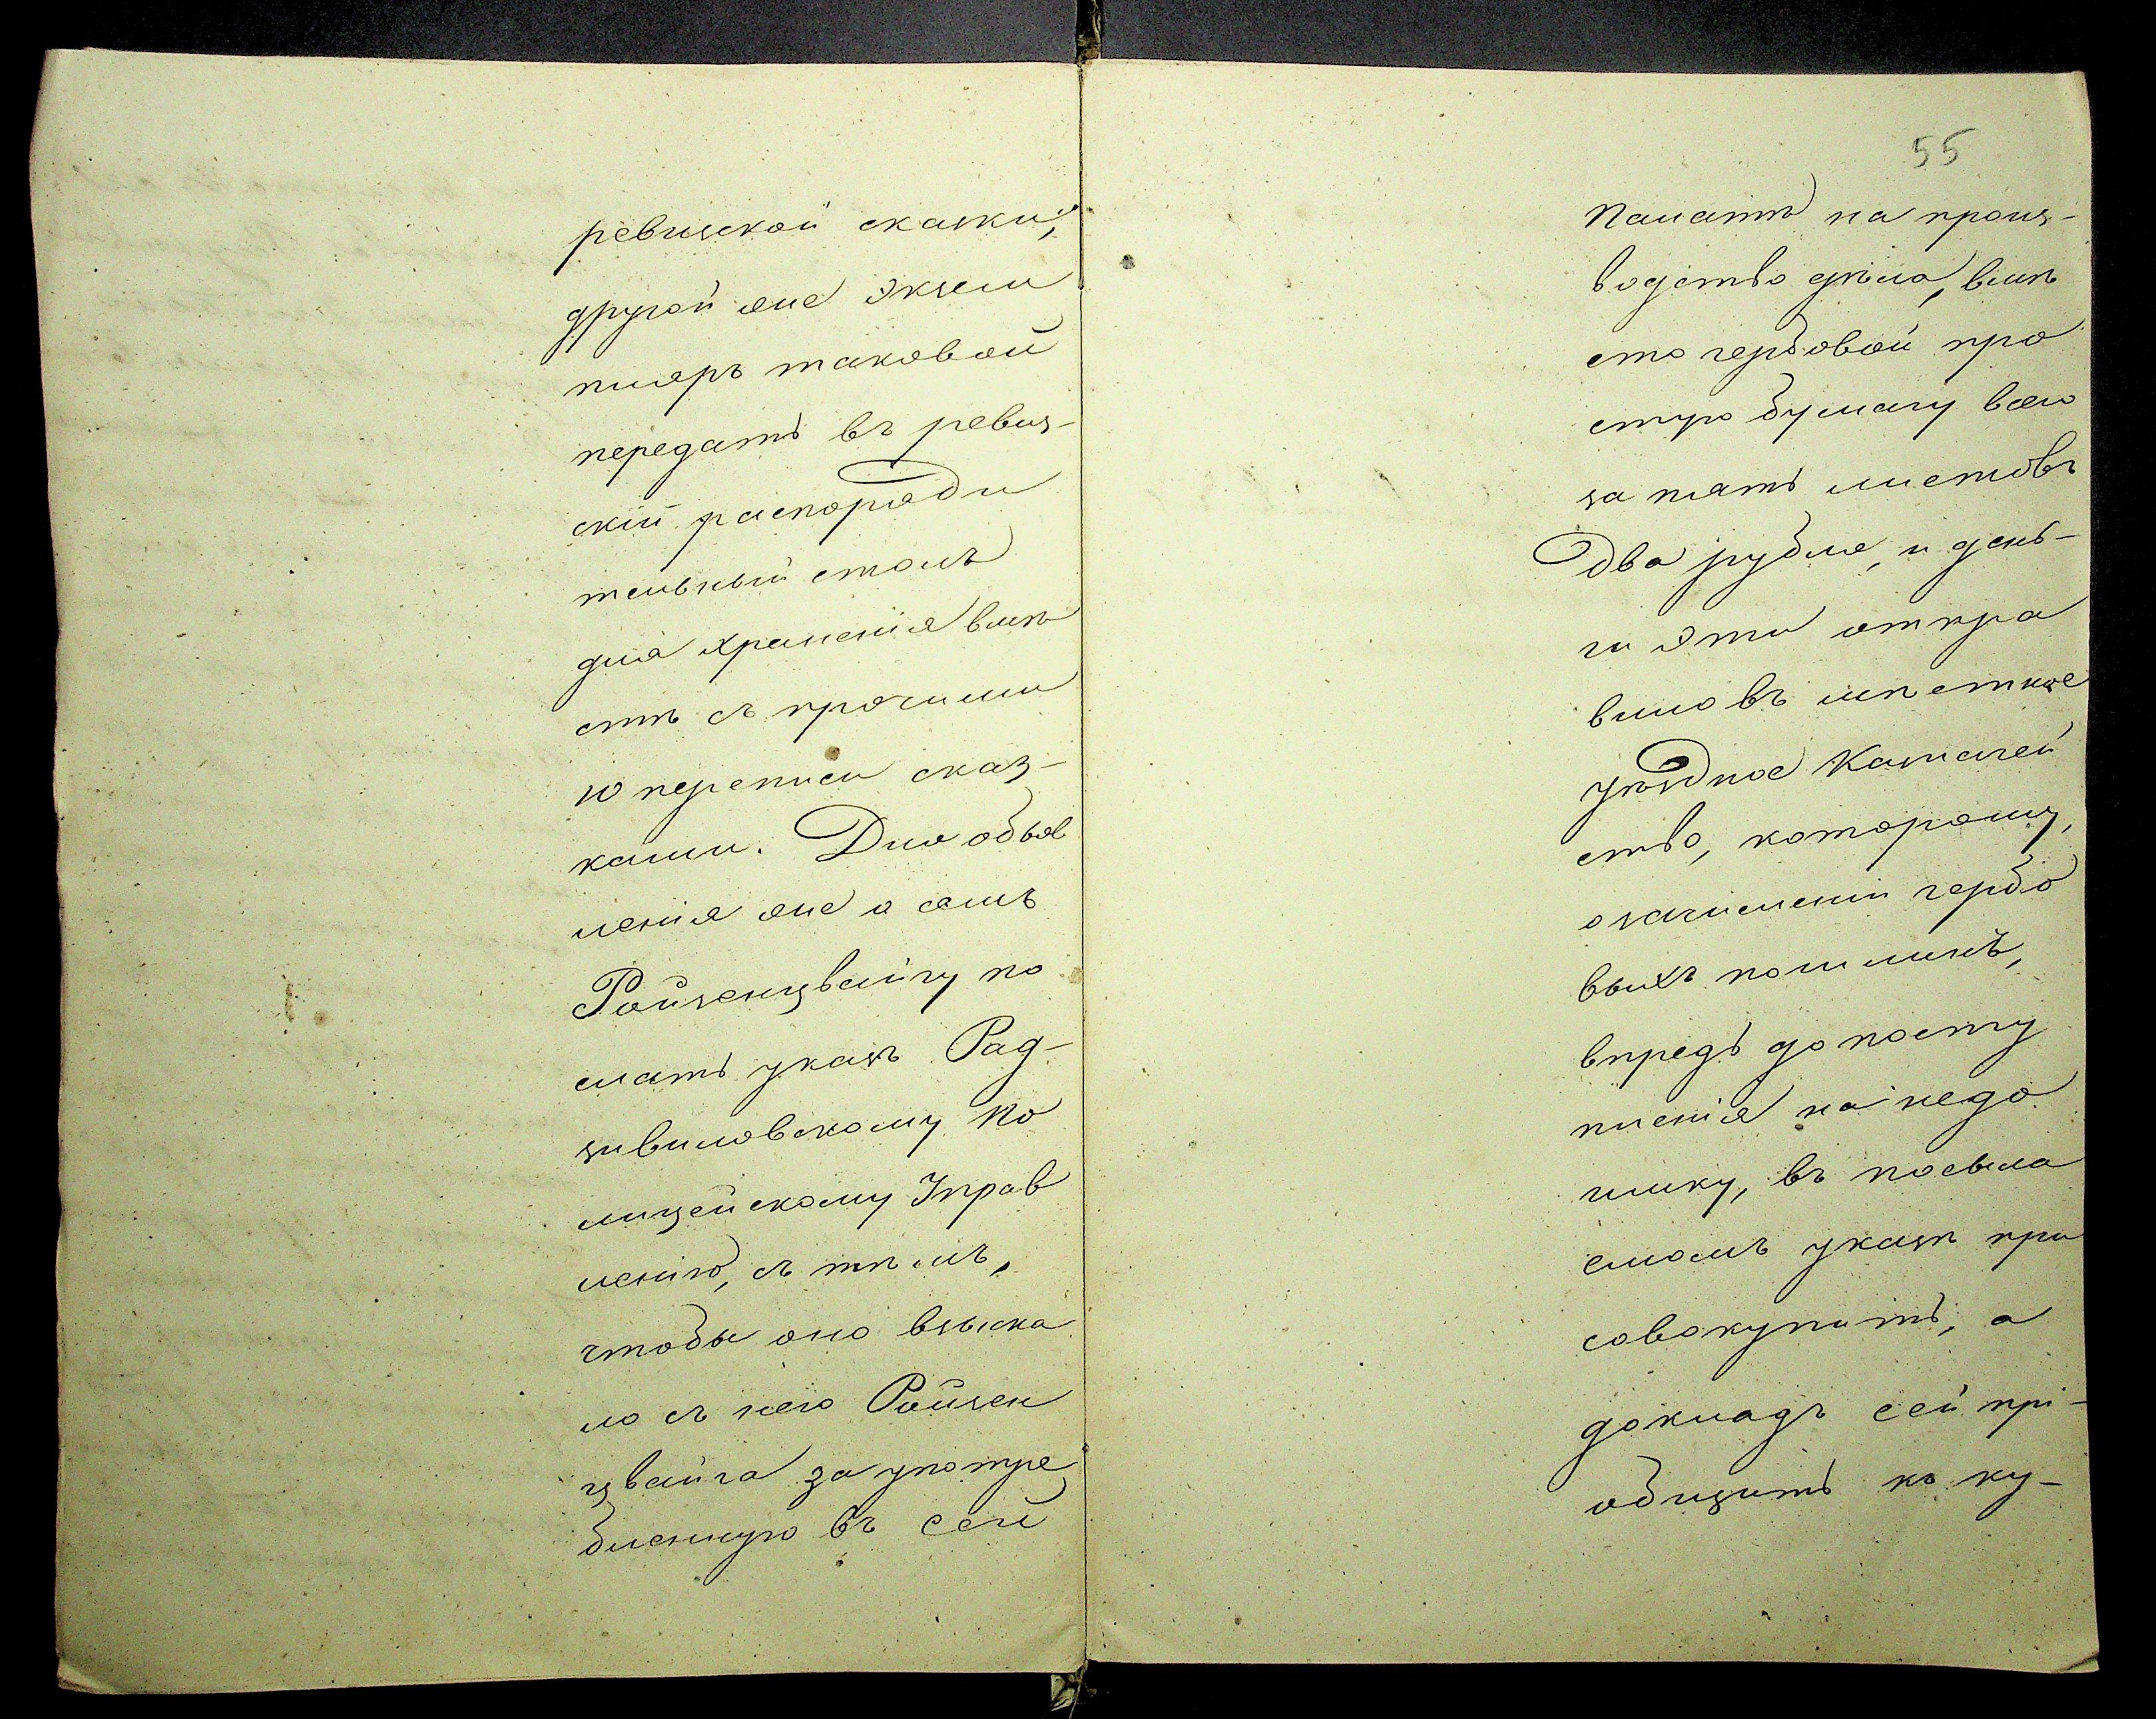 ревизской сказки;
другой же экзем
пляръ таковой
передать въ ревиз-
скій распоряди
тельный столъ
для храненія вмѣ
стѣ съ прочими
10 переписи сказ-
ками. Для объяв
ленія же о семъ
Ройзенцвайгу по
слать указъ Рад-
зивиловскому По
лицейскому Управ
ленію, съ тѣмъ,
чтобы оно взыска
ло съ него Ройзен
цвайга за употре
бленную въ сей
55
Палатѣ на произ-
водство дѣла, вмѣ
сто гербовой про
стую бумагу всего
за пять листовъ
два рубля, и день-
ги эти отпра
вило въ мѣстное
уѣздное Казначей
ство, которому,
о зачисленіи гербо
выхъ пошлинъ,
впредь до посту
пленія на недо
имку, въ посыла
емомъ указѣ при
совокупить, а
докладъ сей прі-
общить къ ку-